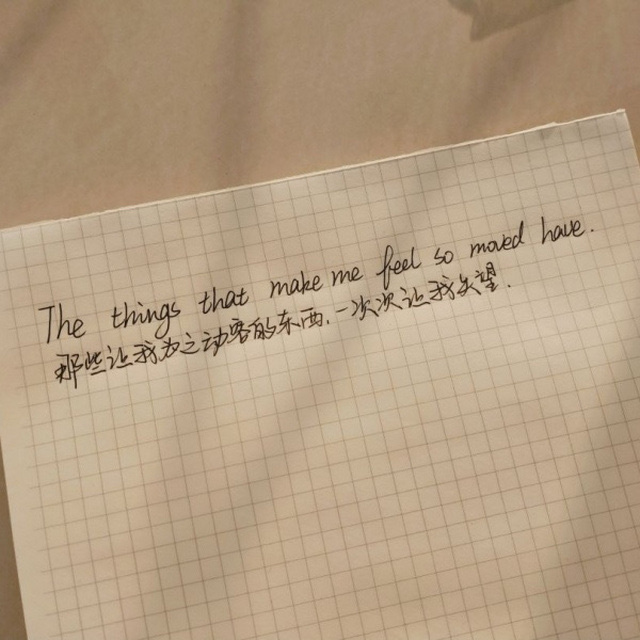 The things that make me feel so moved have.
那些让我为之动容的东西,一次次让我失望.